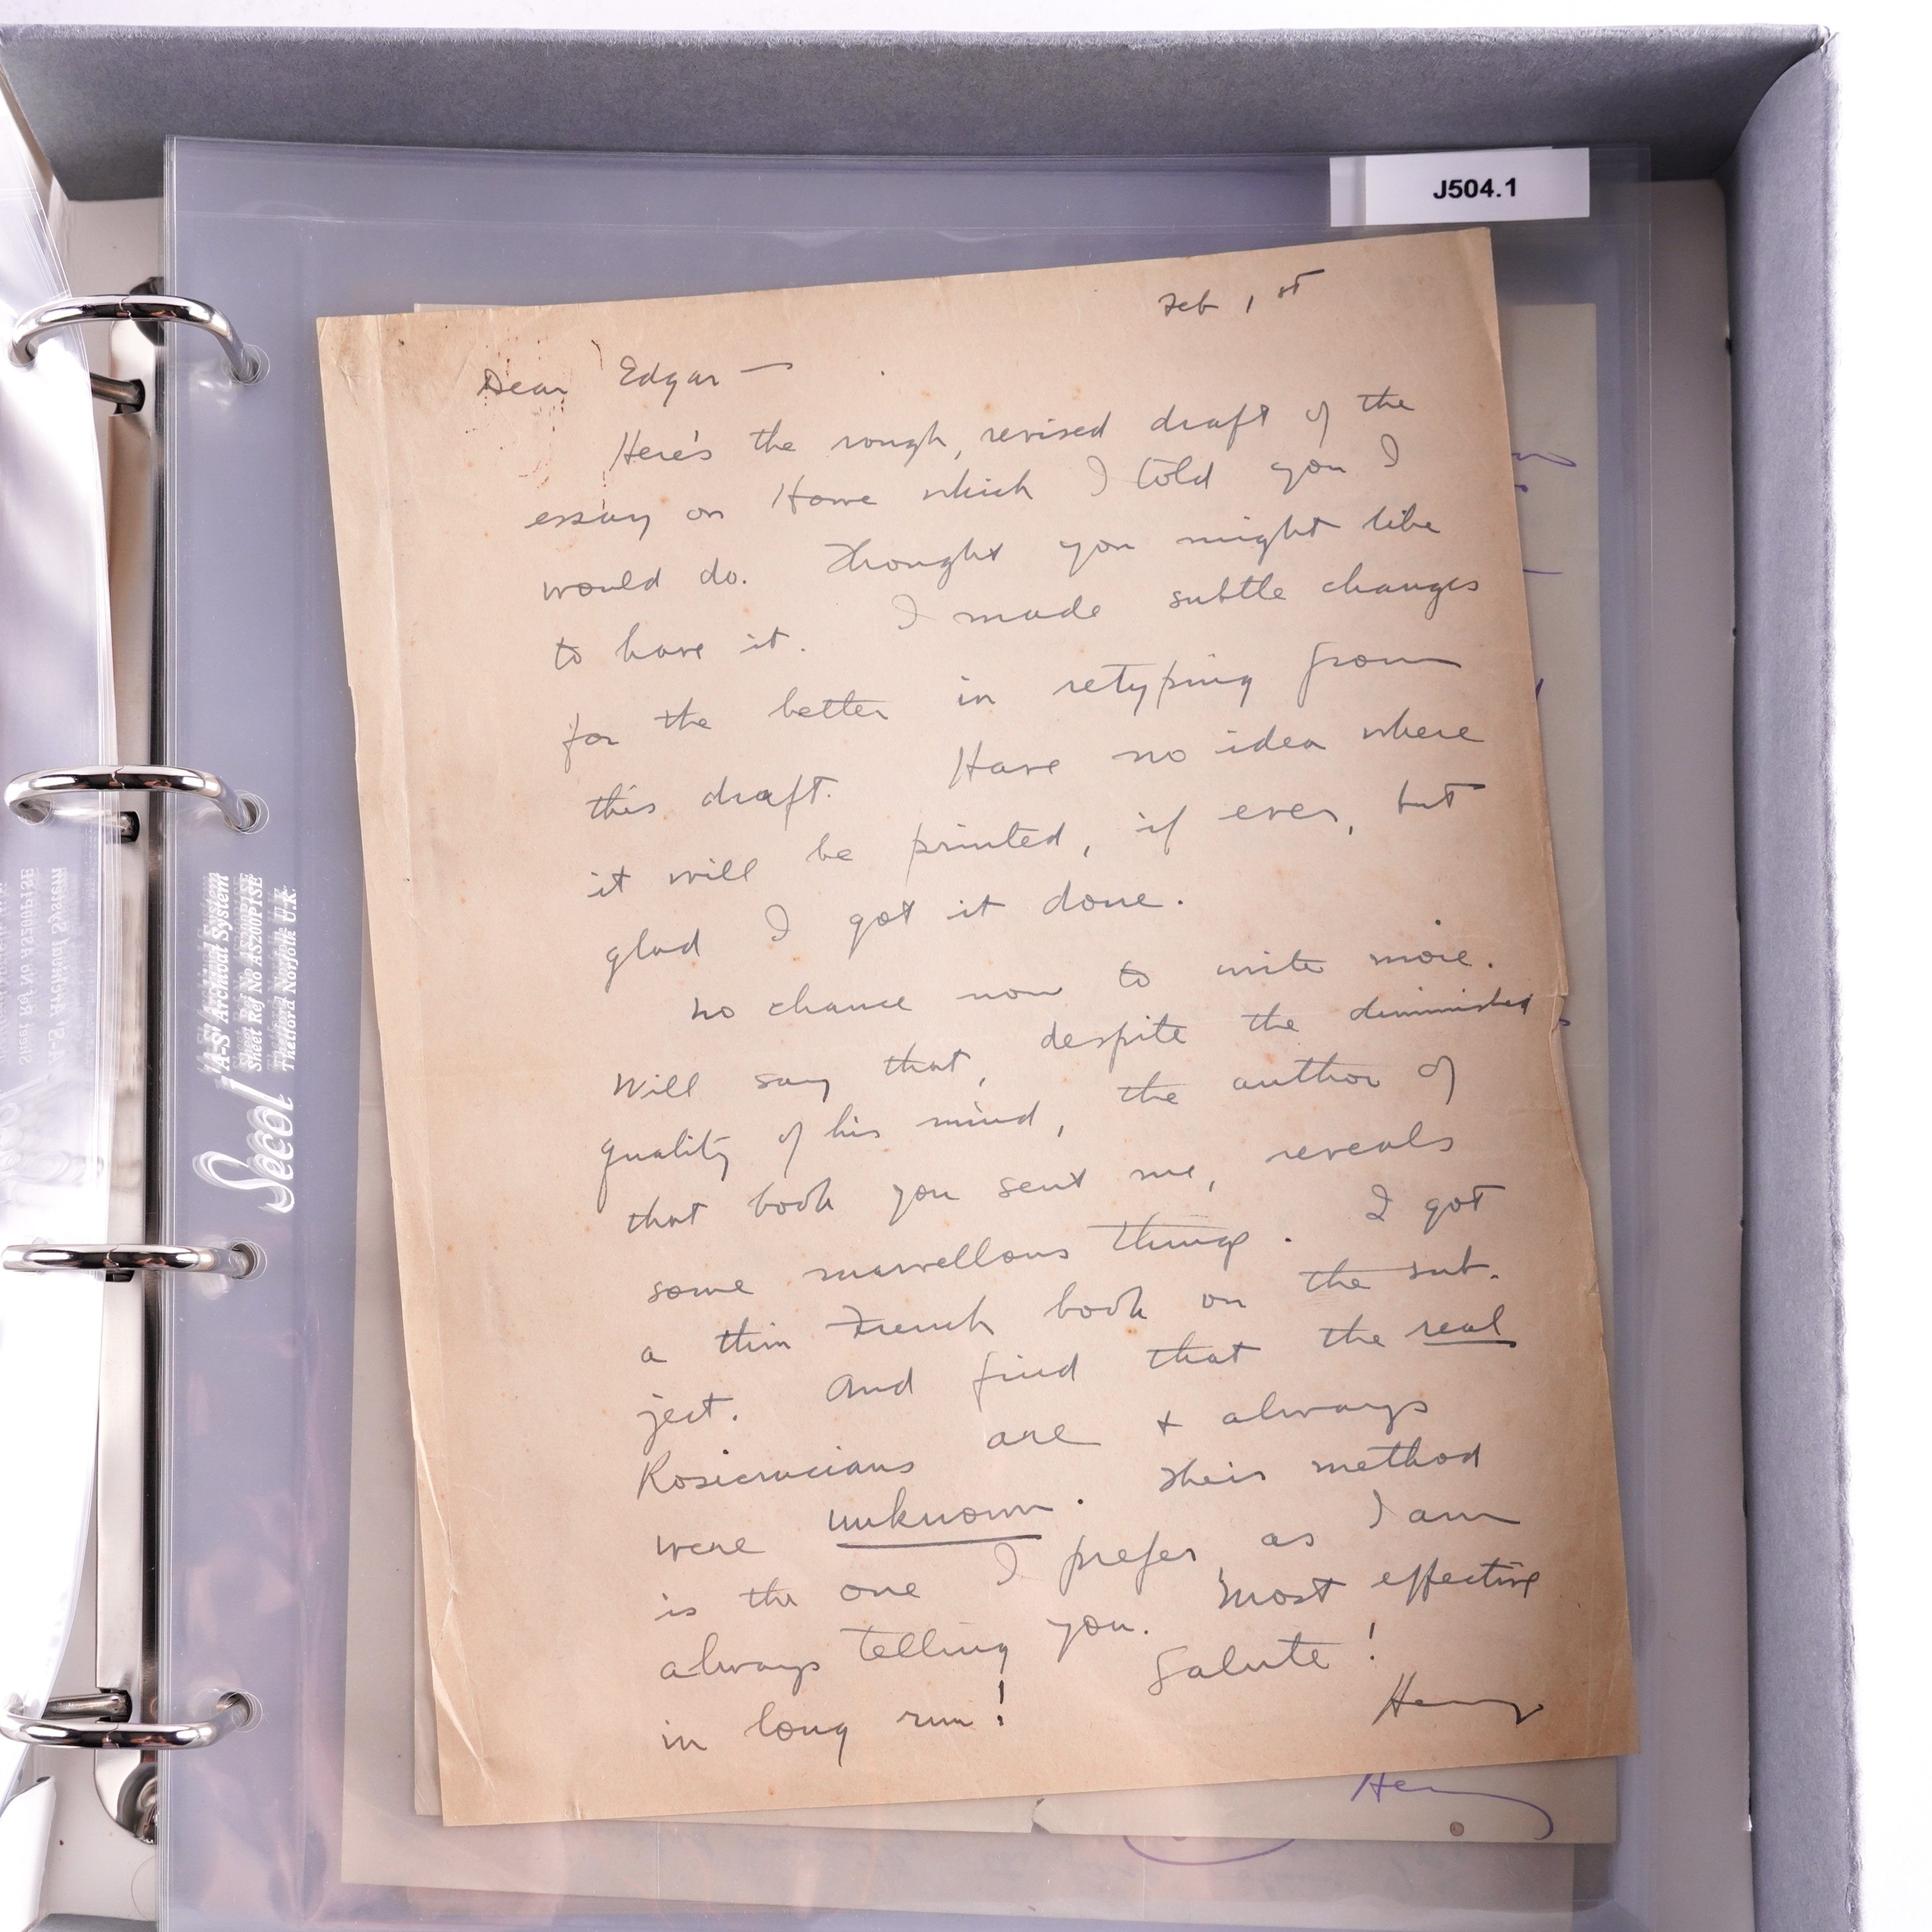 J504.1
Feb 1st
Dear Edgar —
Here's the rough, revised draft of the
essay on Howe which I told you I
would do. Thought you might like
to have it. I made subtle changes
for the better in retyping from
this draft. Have no idea where
it will be printed, if ever, but
glad I got it done.
No chance now to write more.
Will say that, despite the diminished
quality of his mind, the author of
that book you sent me, reveals
some marvellous things. I got
a thin French book on the sub-
ject. And find that the real
Rosicrucians are + always
were unknown. Their method
is the one I prefer, as I am
always telling you. Most effective
in long run! Salute!
Henry
Secol
A-S' Archival System
Sheet Ref No AS200P1SE
Thetford Norfolk U.K.